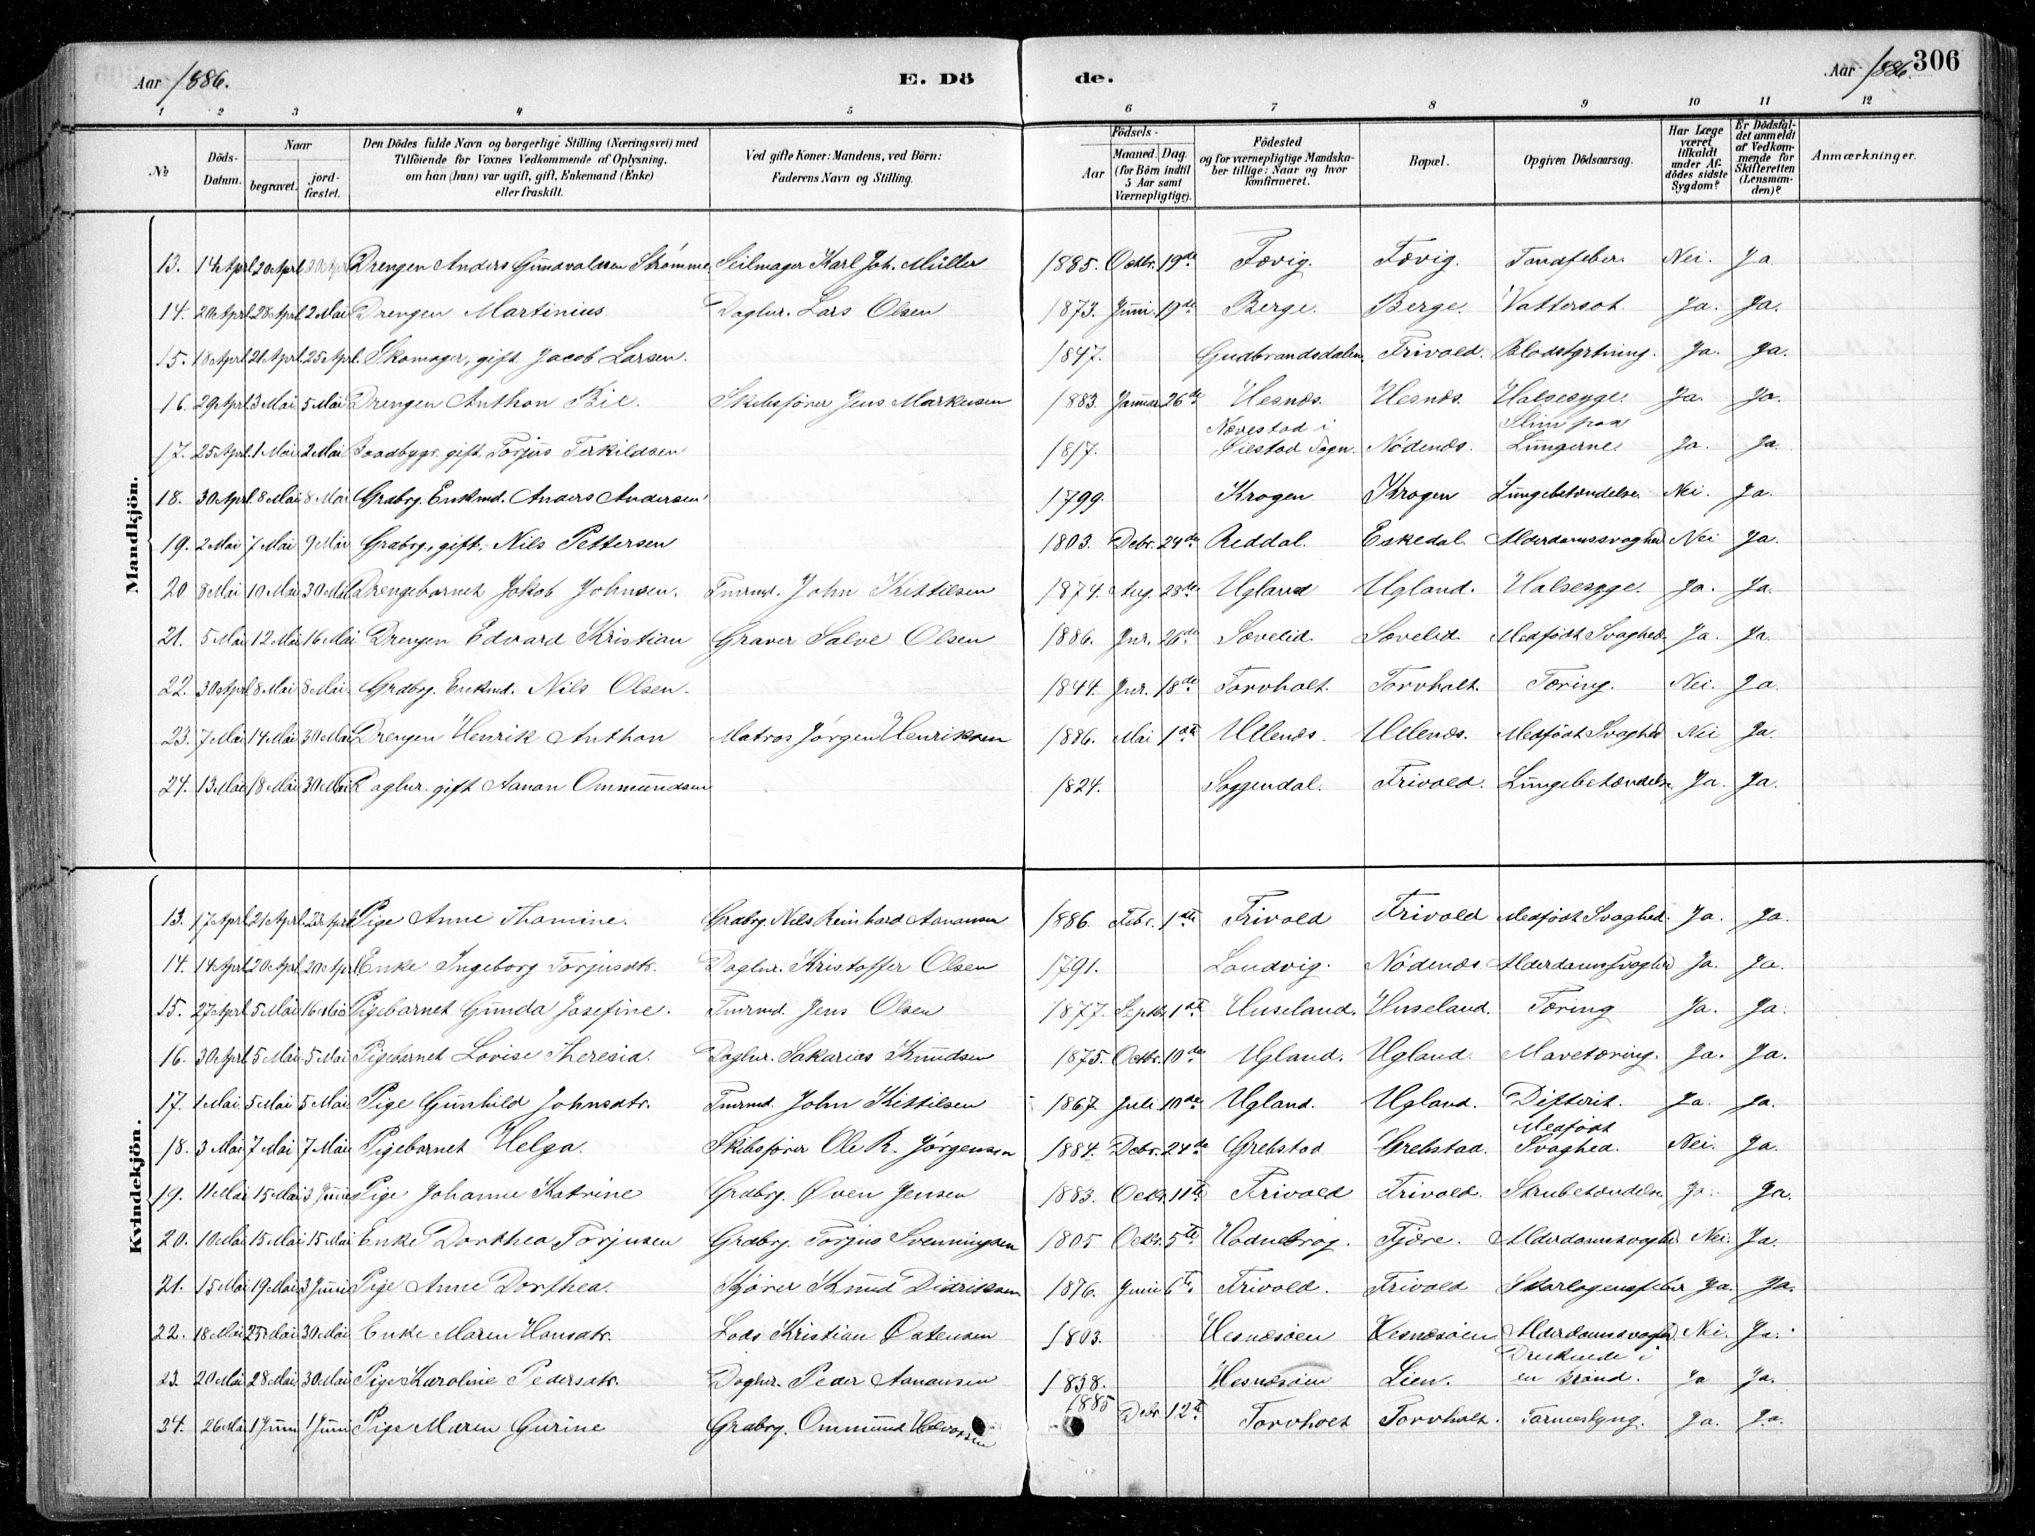 Aar 1886. E. Dö de. Aar 1886. 306
1 2 3 4 5 6 7 8 9 10 11 12
№ Döds-Datum. Naar begravet. jord-fæstet. Den Dödes fulde Navn og borgerlige Stilling (Næringsvei) med Tilföiende for Voxnes Vedkommende af Oplysning, om han (hun) var ugift, gift, Enkemand (Enke) eller fraskilt. Ved gifte Koner: Mandens, ved Börn: Faderens Navn og Stilling. Födsels- Aar Maaned. Dag. (for Börn indtil 5 Aar samt Værnepligtige). Födested og for værnepligtige Mandska-ber tillige: Naar og hvor konfirmeret. Bopæl. Opgiven Dödsaarsag. Har Læge været tilkaldt under Af-dödes sidste Sygdom? Er Dödsfal-det anmeldt af Vedkom-mende for Skifteretten (Lensman-den)? Anmærkninger.
Mandkjön.
13. 14 Aprl 20 Aprl 20 Aprl Drengen Anders Gundvaldsen Strømme Seilmager Karl Joh. Müller 1885. Octbr. 19de Fævig. Fævig. Tandfeber Nei. Ja
14. 20 Aprl 28 Aprl 2 Mai Drengen Martinius Daglnr. Lars Olsen 1873. Juni 19de Berge. Berge. Vattersot. Ja. Ja.
15. 18 Aprl 21 Aprl 25 Aprl. Skomager, gift Jacob Larsen. 1847. Gudbrandsdalen. Frivold. Blodstyrtning. Ja. Ja.
16. 29 Aprl 3 Mai 5 Mai Drengen Anthon Bie. Skibsfører Jens Markusen 1883. Januar 26de Hesnæs. Hesnæs. Halsesyge Ja. Ja.
17. 25 Aprl 1 Mai 2 Mai Baadbygr. gift Torjus Terkildsen 1817. Nævestad i Øiestad Sogn. Nødenæs. Slim paa Lungerne Ja. Ja
18. 30 Aprl 8 Mai 8 Mai Grdbrg. Enkmd. Anders Andersen 1799. Krogen Krogen Lungebetændelse Nei. Ja.
19. 2 Mai 7 Mai 9 Mai Grdbrg., gift, Nils Pettersen 1803. Debr. 24de Reddal. Eskedal. Alderdomssvaghed Nei Ja.
20 8 Mai 10 Mai 30 Mai Drengebarnet Jakob Johnsen. Tmrmd. John Kittilsen 1874. Aug. 28de Ugland Ugland. Halsesyge. Ja. Ja.
21. 5 Mai 12 Mai 16 Mai Drengen Edvard Kristian Graver Salve Olsen 1886. Jnr. 26de Sævelid. Sævelid. Medfødt Svaghed Ja. Ja.
22. 30 Aprl 8 Mai 8 Mai. Grdbrg. Enkmd. Nils Olsen. 1844. Jnr. 18de Torvholt. Torvholt. Tæring. Nei. Ja.
23. 7 Mai 14 Mai 30 Mai Drengen Henrik Anthon Matros Jørgen Henriksen 1886. Mai 1ste Ullenæs. Ullenæs. Medfødt Svaghed Nei Ja.
24. 13 Mai 18 Mai 30 Mai Daglnr. gift Aanon Ommundsen 1824. Soggendal. Frivold. Lungebetændelse Ja. Ja.
Kvindekjön.
13. 17 Aprl 21 Aprl 23 Aprl Pige Anne Thomine. Grdbrg. Nils Reinhard Aanonsen 1886. Febr. 1ste Frivold Frivold Medfødt Svaghed. Ja. Ja.
14. 14 Aprl 20 Aprl 20 Aprl Enke Ingeborg Torjusdtr. Daglnr. Kristoffer Olsen 1791. Landvig. Nødenæs Alderdomssvaghed Ja. Ja.
15. 27 Aprl 5 Mai 16 Mai Pigebarnet Gunda Josefine. Tmrmd. Jens Olsen 1877. Septbr. 1ste Huseland. Huseland. Tæring Ja. Ja.
16. 30 Aprl 5 Mai. 5 Mai. Pigebarnet Lovise Theresia. Daglnr. Sakarias Knudsen 1875. Octbr. 10de Ugland. Ugland. Mavetæring. Ja. Ja.
17. 1 Mai 5 Mai 5 Mai Pige Gunhild Johnsdtr. Tmrmd. John Kittilsen 1867. Juli 10de Ugland. Ugland. Difterit. Ja. Ja.
18. 3 Mai 7 Mai 7 Mai Pigebarnet Helga. Skibsfører Ole R. Jørgensen 1884. Debr. 24de Grebstad Grebstad. Medfødt Svaghed. Nei. Ja.
19. 11 Mai 15 Mai 3 Juni Pige Johanne Katrine Grdbrg. Øven Jensen 1883. Octbr. 11te Frivold Frivold. Strubetændelse Ja. Ja.
20. 10 Mai 15 Mai 15 Mai Enke Dorthea Torjusen Grdbrg. Torjus Svenningsen 1805 Octbr. 5te Hodnebrog. Fjære. Alderdomssvaghed Nei. Ja.
21. 15 Mai 19 Mai 3 Juni Pige Anne Dorthea. Kjører Knud Didriksen 1876. Juni 6te Frivold. Frivold Skarlagensfeber Ja. Ja.
22. 18 Mai 25 Mai 30 Mai Enke Maren Hansdtr. Lods Kristian Ostensen 1803. Hesnæsøen Hesnæsøen Alderdomssvaghed Nei. Ja.
23. 20 Mai 28 Mai 30 Mai Pige Karoline Pedersdtr. Daglnr. Peder Aanonsen 1838. Hesnæsøen Lien. Druknede i en Brønd. Ja Ja.
24. 26 Mai 1 Juni 1 Juni Pige Maren Gurine Grdbrg. Ommund Halvorsen 1885 Debr. 12te Torvholt Torvholt. Tarmeslyng. Ja. Ja.